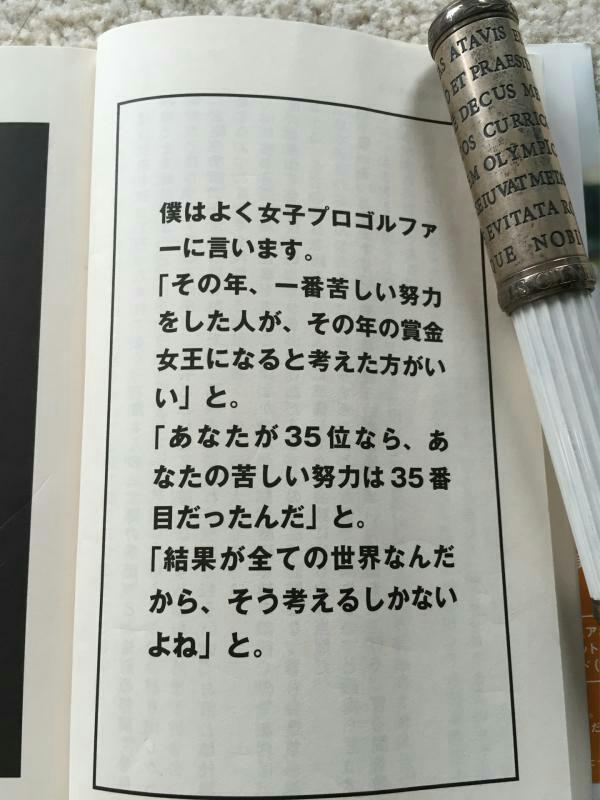 僕はよく女子プロゴルファ
ーに言います。
「その年、一番苦しい努力
をした人が、その年の賞金
女王になると考えた方がい
い」と。
「あなたが35位なら、あ
なたの苦しい努力は35番
目だったんだ」と。
「結果が全ての世界なんだ
から、そう考えるしかない
よね」と。
ATAVIS
ET PRAESID
DECUS ME
CURRIC
OLYMPIC
EVITATA RO
QUE NOBI